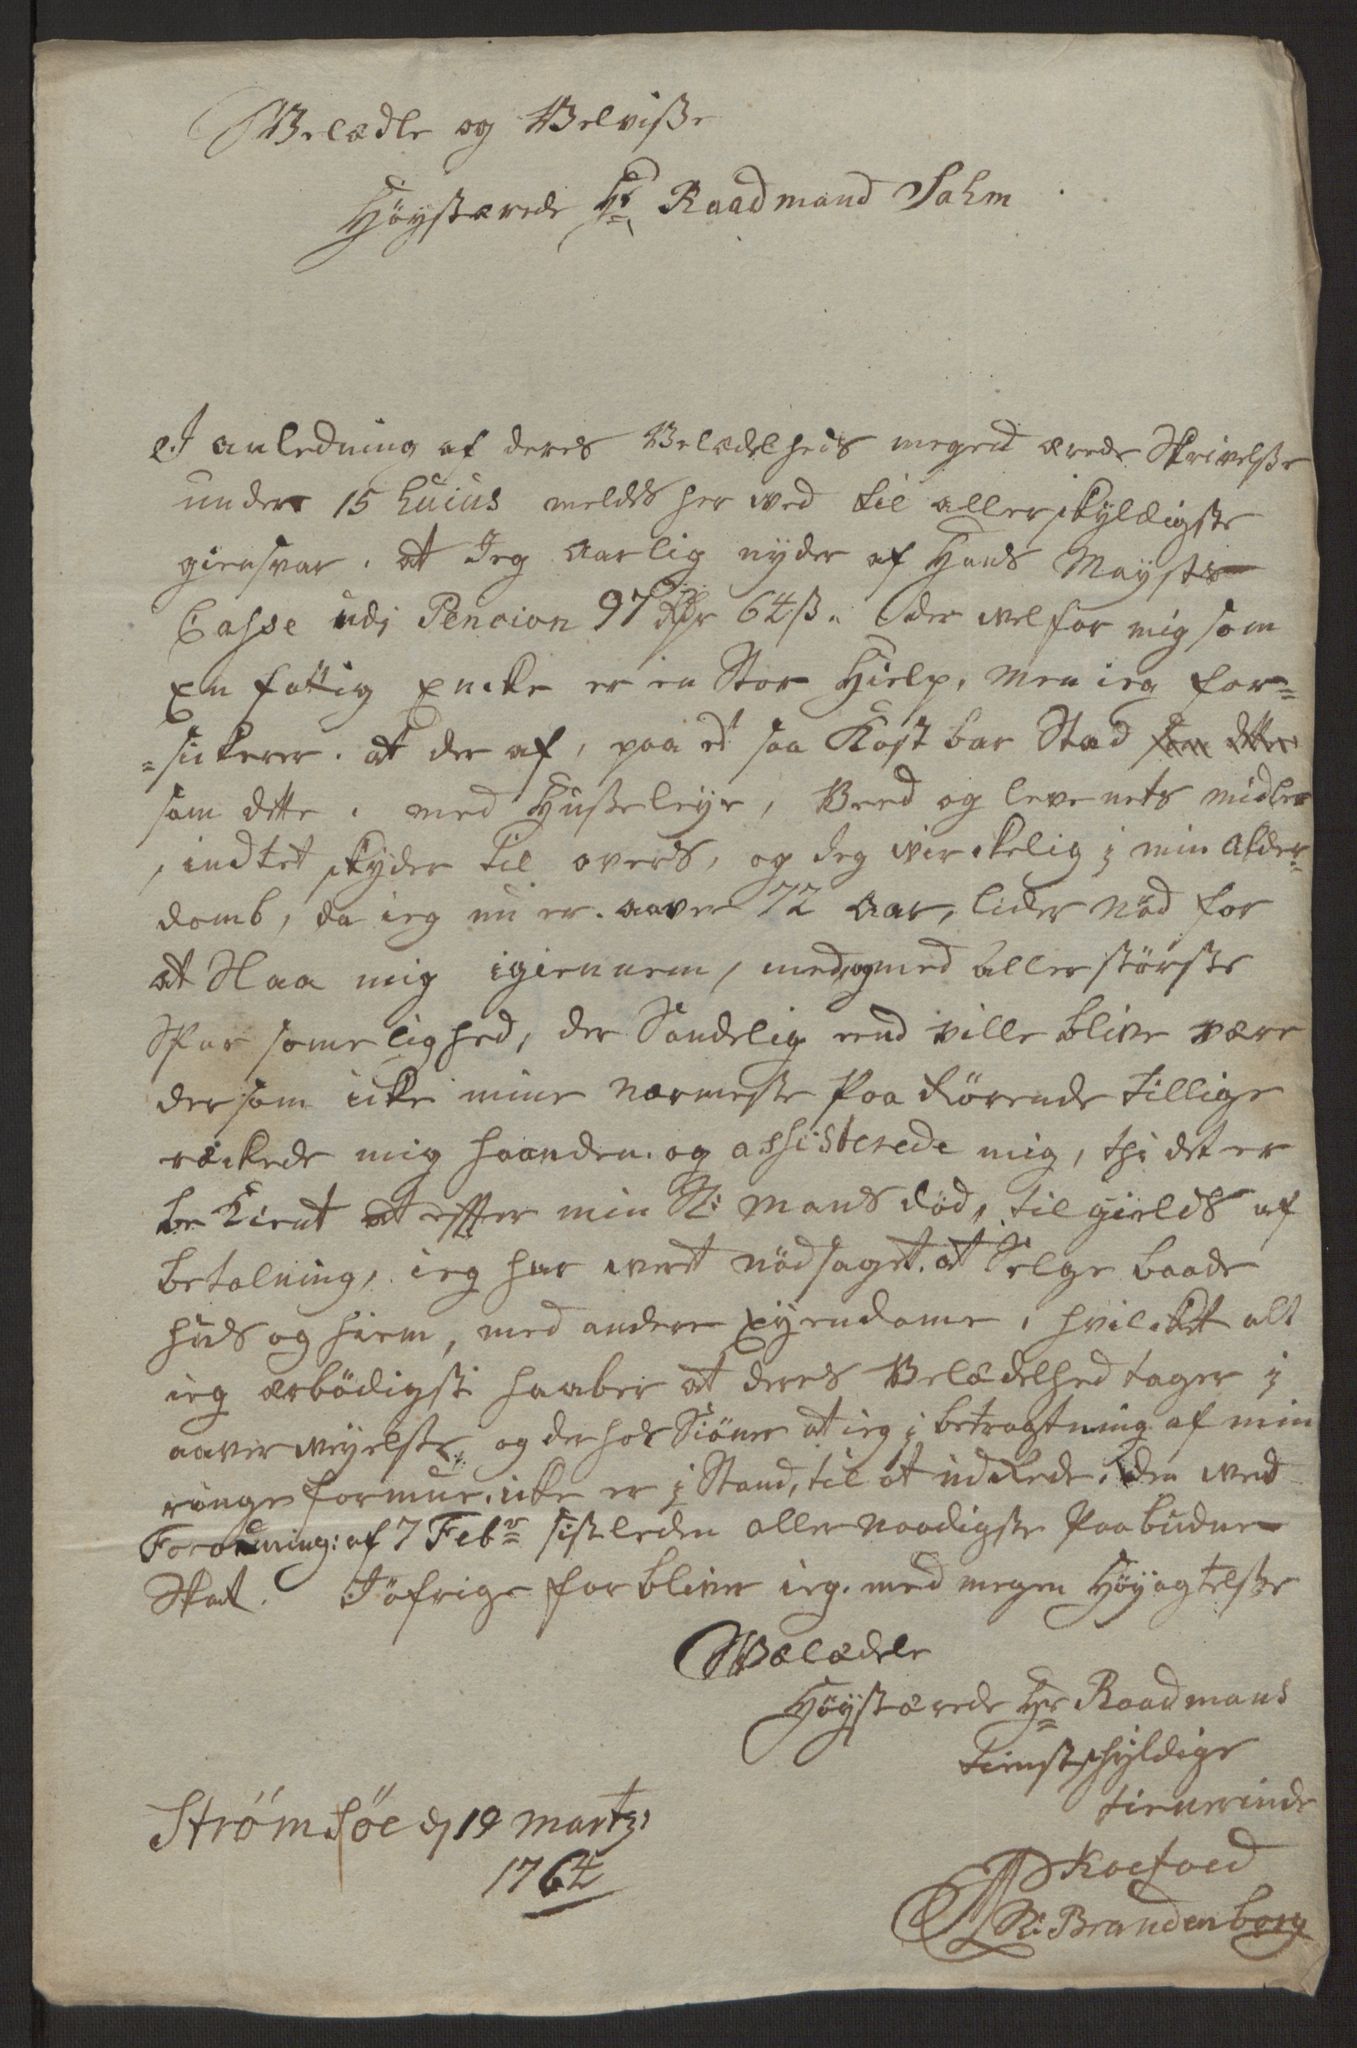 Velædle og Velviise
Höystærede Hr Raadmand Sahm
I anledning af deres Velædelheds meget ærede Skrivelsse
under 15 huius meldes her ved til allerskyldigste
giensvar. at Jeg Aarlig nyder af Hans Mayssts
Casse udj Pencion 97 Rdr 64 ß. der vel for mig som
En fattig Encke er en Stor Hielp, men ieg for=
=sickerer. at der af, paa et saa Kostbar Stæd som dette
som dette, med Husseleye, Veed og levenets midler
, indtet skyder til overs, og Jeg virckelig i min Alder=
domb, da ieg nu er. aaver 72 Aar, lider nød for
at Slaa mig igiennem, med og med aller störste
Sparsomelighed, der Sandelig end ville blive være
dersom icke mine nærmeste Paarörende tillige
räckede mig haanden. og assisterede mig, thi det er
bekient at effter min Sl: mans död, til gields af
betalning, ieg har veret nödsaget. at Sælge baade
huus og hiem, med andere Eyendome, hvilcket alt
ieg ærbödigst haaber at deres Velædelhed tager i
aaverveyelsse, og derhos Siöner at ieg i betragtning af min
ringe formue. icke er i Stand, til at udrede. den ved
Forordning: af 7 Febr sistleden aller naadigste Paabudne
Skat. I öfrige forbliver ieg. med megen Höyagtelsse
Velædle
Höystærede Hr Raadmans
tienstschyldige
tienerinde
Strömsöe d 19 Martz
1764
AP Koefoed
Sl: Brandenborg